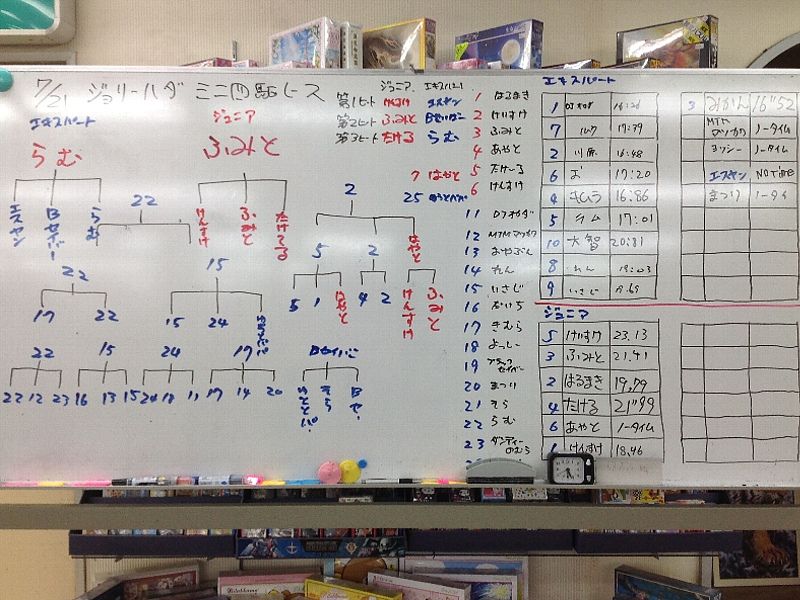 7/21 ジョリーハダ ミニ四駆レース
エキスパート
らむ
エスヤン
Bセイバー
らむ
22
22
17 22
22 15 24 17
22 12 23 16 13 15 24 18 11 19 14 20
ジュニア
ふみと
けんすけ
ふみと
たける
15
15 24
Bセイバー
そら
ジュニア エキスパート
第1ヒート けんすけ エスヤン
第2ヒート ふみと Bセイバー
第3ヒート たける らむ
7 はやと
25
2
5 2
はやと
5 1 はやと 4 2
けんすけ ふみと
1 はるまき
2 けいすけ
3 ふみと
4 あやと
5 たけーる
6 けんすけ
11 DJオカダ
12 MTMマツオカ
13 おやぶん
14 れん
15 いさじ
16 だいち
17 きむら
18 よっしー
19 ブラックセイバー
20 まつり
21 そら
22 らむ
23 ダンディーのむら
エキスパート
1 DJオカダ
7 19:39
2 川原 16:48
6 17:20
4 キムラ 16:86
5 ラム 17:01
10 大智 20:81
8 れん
9 いさじ
3 みかん 16"52
MTMマツオカ ノータイム
ヨッシー ノータイム
エスヤン NOTime
まつり ノータイム
ジュニア
5 けいすけ 23.13
3 ふみと 21.41
2 はるまき 19,79
4 たける 21"99
6 あやと ノータイム
1 けんすけ 18,46